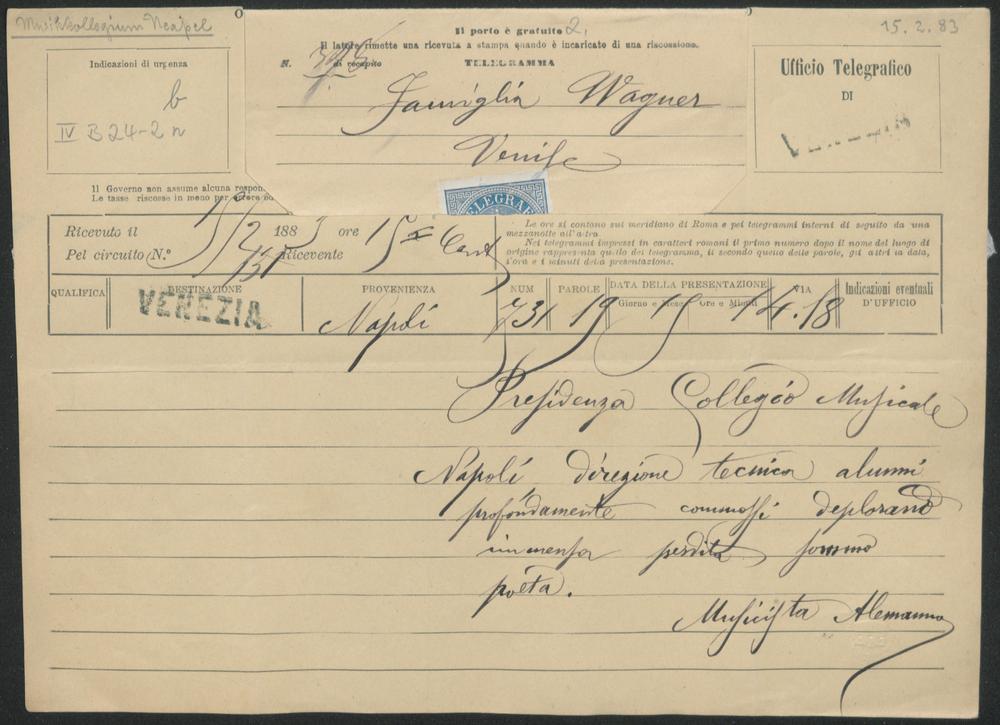 Musikkollegium Neapel
15. 2. 83
Il porto è gratuito 2.
Il latore rimette una ricevuta a stampa quando è incaricato di una riscossione.
N. di recapito TELEGRAMMA
Indicazioni di urgenza
b
IV B 24-2 n
Famiglia Wagner
Venise
Ufficio Telegrafico
DI
VENEZIA
TELEGRAF
Il Governo non assume alcuna respon
Le tasse riscosse in meno per
Ricevuto il 15/2 1883 ore 15
Pel circuito N.º Ricevente
Le ore si contano sul meridiano di Roma e pei telegrammi interni di seguito da una
mezzanotte all'altra.
Nei telegrammi impressi in caratteri romani il primo numero dopo il nome del luogo di
origine rappresenta quello del telegramma, il secondo quello delle parole, gli altri la data,
l'ora e i minuti della presentazione.
QUALIFICA DESTINAZIONE PROVENIENZA NUM PAROLE DATA DELLA PRESENTAZIONE VIA Indicazioni eventuali
Giorno e Mese Ore e Minuti D'UFFICIO
VENEZIA Napoli 731 19 15 14.18
Presidenza Collegio Musicale
Napoli direzione tecnica alunni
profondamente commossi deplorano
immensa perdita sommo
poeta.
Musicista Alemanno